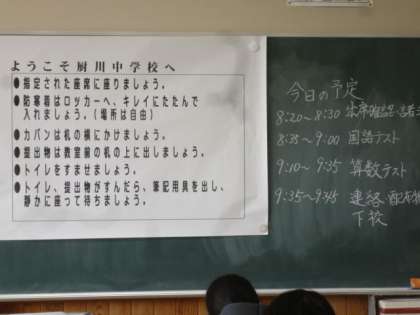 ようこそ厨川中学校へ
●指定された座席に座りましょう。
●防寒着はロッカーへ、キレイにたたんで
入れましょう。(場所は自由)
●カバンは机の横にかけましょう。
●提出物は教室前の机の上に出しましょう。
●トイレをすませましょう。
●トイレ、提出物がすんだら、筆記用具を出し、
静かに座って待ちましょう。
今日の予定
8:20〜8:30 出席確認・諸注
8:35〜9:00 国語テスト
9:10〜9:35 算数テスト
9:35〜9:45 連絡 配布物
下校